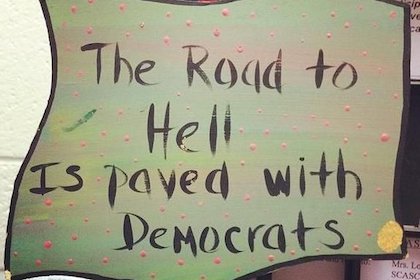 The Road to
Hell
Is paved with
Democrats
Mrs. Le
SCASC